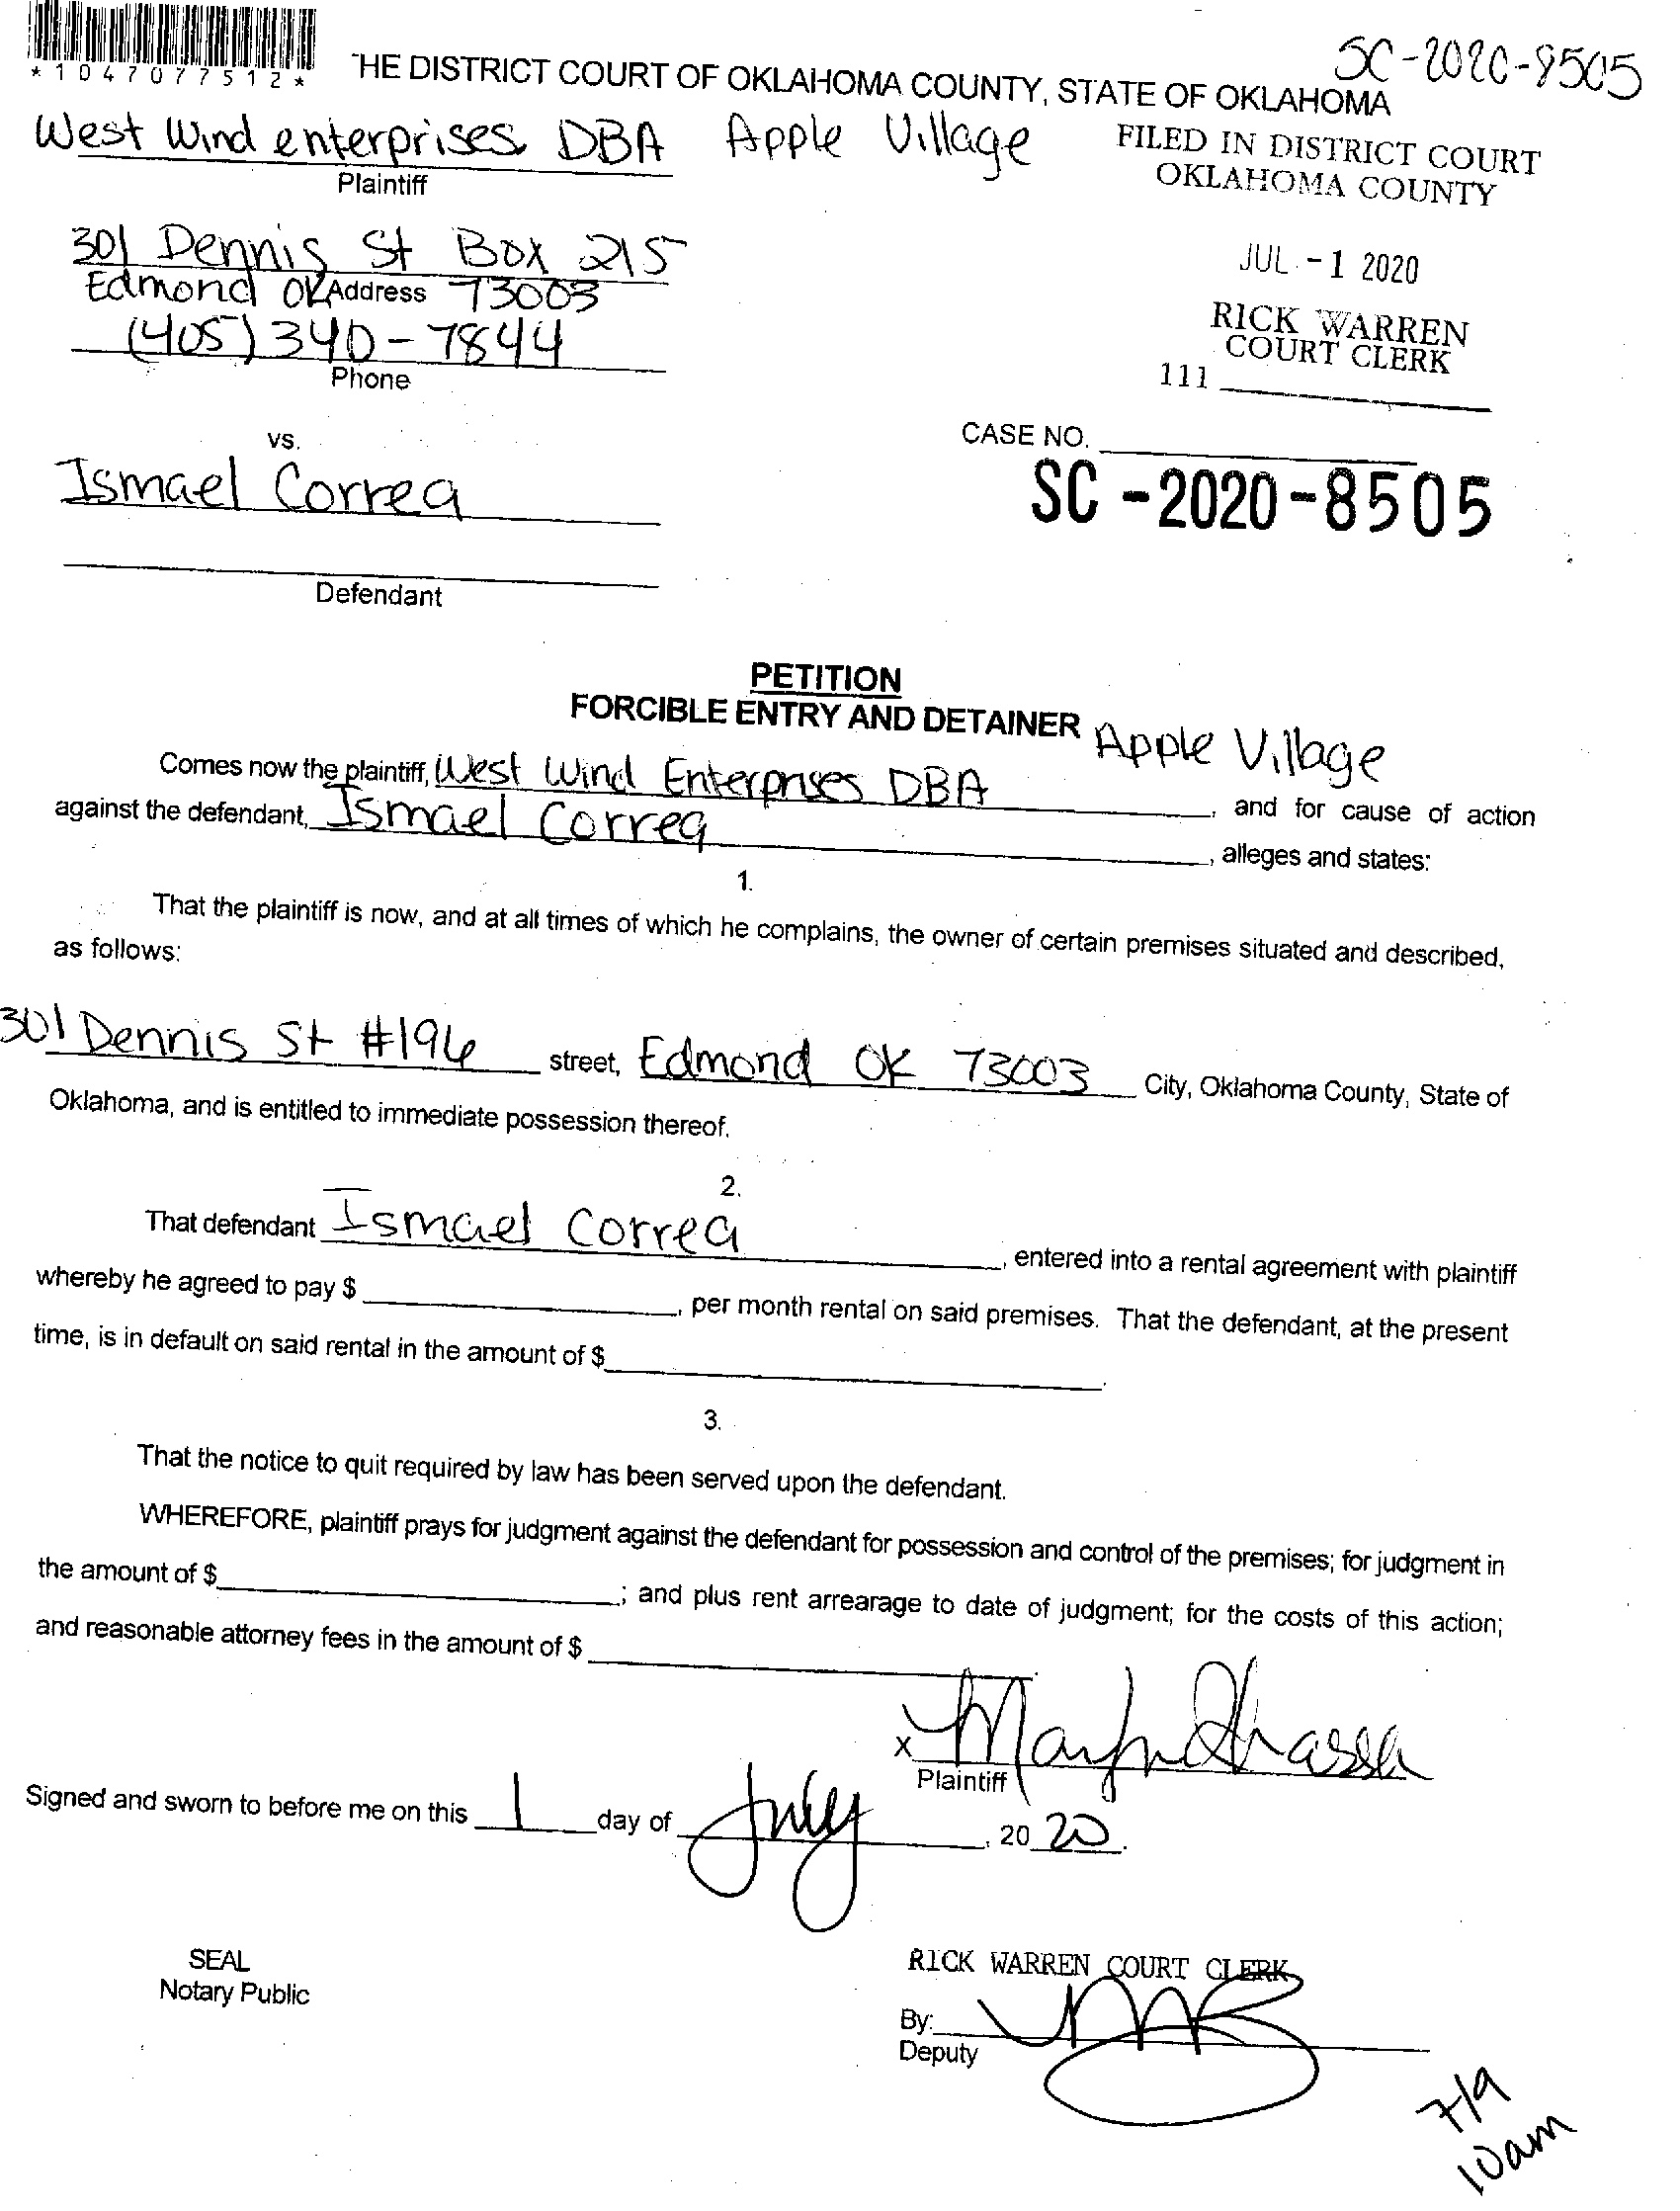 *1047077512*
SC-2020-8505
THE DISTRICT COURT OF OKLAHOMA COUNTY, STATE OF OKLAHOMA
West Wind enterprises DBA Apple Village
Plaintiff
FILED IN DISTRICT COURT
OKLAHOMA COUNTY
301 Dennis St Box 215
Edmond OK Address 73003
(405) 340-7844
Phone
JUL -1 2020
RICK WARREN
COURT CLERK
111
vs.
CASE NO.
Ismael Correa
SC-2020-8505
Defendant
PETITION
FORCIBLE ENTRY AND DETAINER
Comes now the plaintiff, West Wind Enterprises DBA Apple Village, and for cause of action
against the defendant, Ismael Correa, alleges and states:
1.
That the plaintiff is now, and at all times of which he complains, the owner of certain premises situated and described,
as follows:
301 Dennis St #196 street, Edmond OK 73003 City, Oklahoma County, State of
Oklahoma, and is entitled to immediate possession thereof.
2.
That defendant Ismael Correa, entered into a rental agreement with plaintiff
whereby he agreed to pay $, per month rental on said premises. That the defendant, at the present
time, is in default on said rental in the amount of $.
3.
That the notice to quit required by law has been served upon the defendant.
WHEREFORE, plaintiff prays for judgment against the defendant for possession and control of the premises; for judgment in
the amount of $; and plus rent arrearage to date of judgment; for the costs of this action;
and reasonable attorney fees in the amount of $.
X
Plaintiff
Signed and sworn to before me on this 1 day of July, 2020.
SEAL
Notary Public
RICK WARREN COURT CLERK
By:
Deputy
7/9
10am